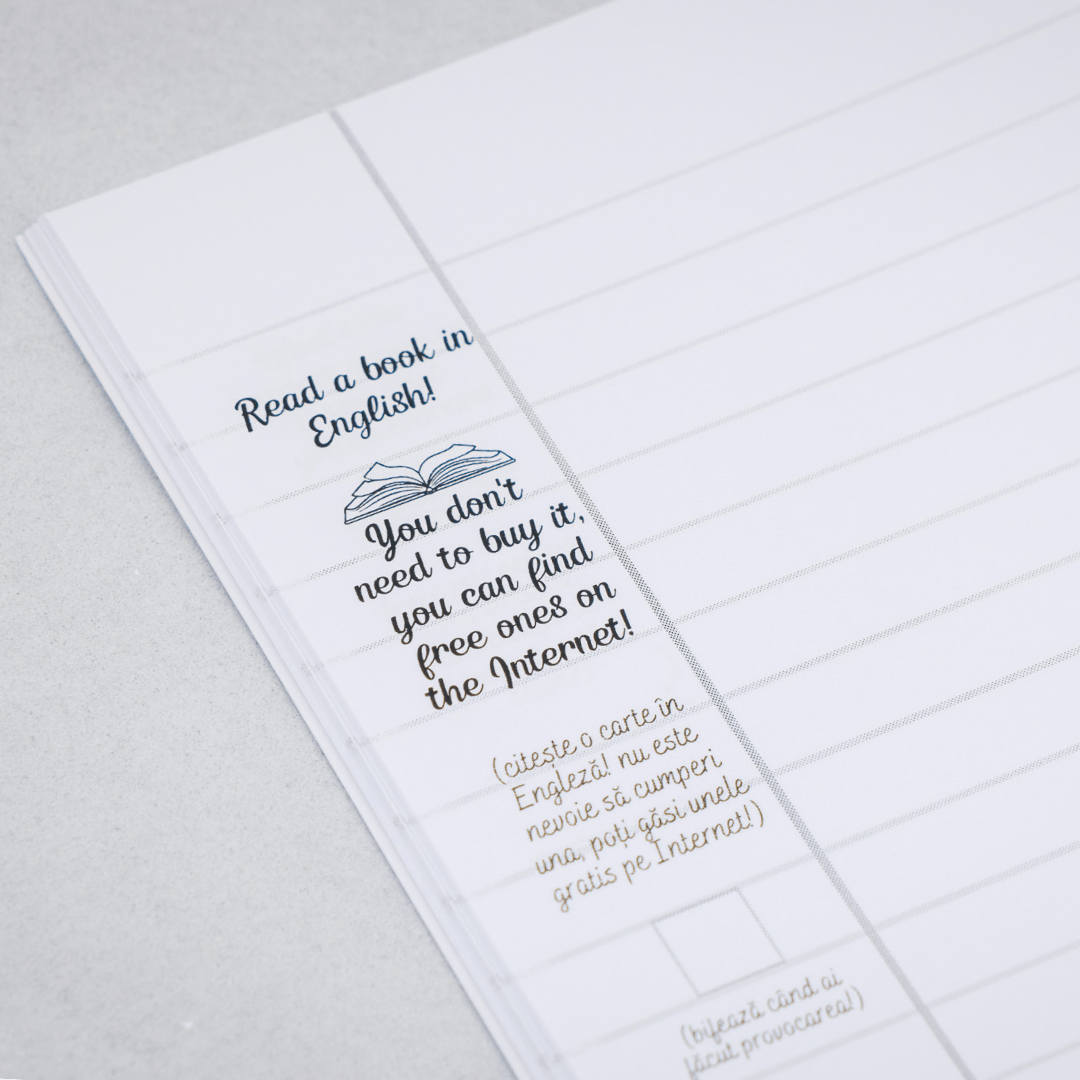 Read a book in
English!
You don't
need to buy it,
you can find
free ones on
the Internet!
(citește o carte în
Engleză! nu este
nevoie să cumperi
una, poți găsi unele
gratis pe Internet!)
(bifează când ai
făcut provocarea!)